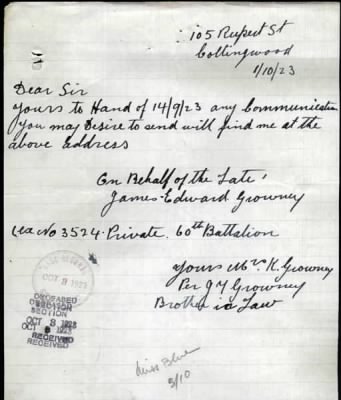 105 Rupert St
Collingwood
1/10/23
Dear Sir
Yours to Hand of 14/9/23 any Communication
You may Desire to send will find me at the
above address
On Behalf of the Late
James Edward Growney
No 3524 Private 60th Battalion
Yours Mrs K. Growney
Per J Growney
Brother in Law
BASE RECORDS
OCT 3 1923
DECEASED
SECTION
OCT 3 1923
RECEIVED
RECEIVED
Miss Blue
5/10